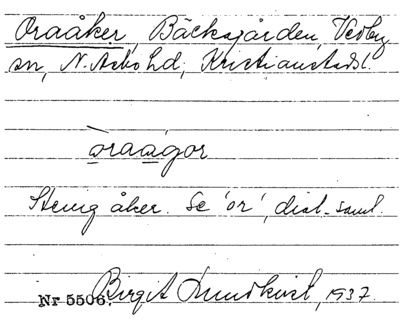 Oraåker, Bäcksgården, Vedby
sn, N. Åsbo hd, Kristianstads l.
òraagor
Stenig åker. Se 'or', dial. saml.
Nr 5506. Birgit Lundkvist, 1937.